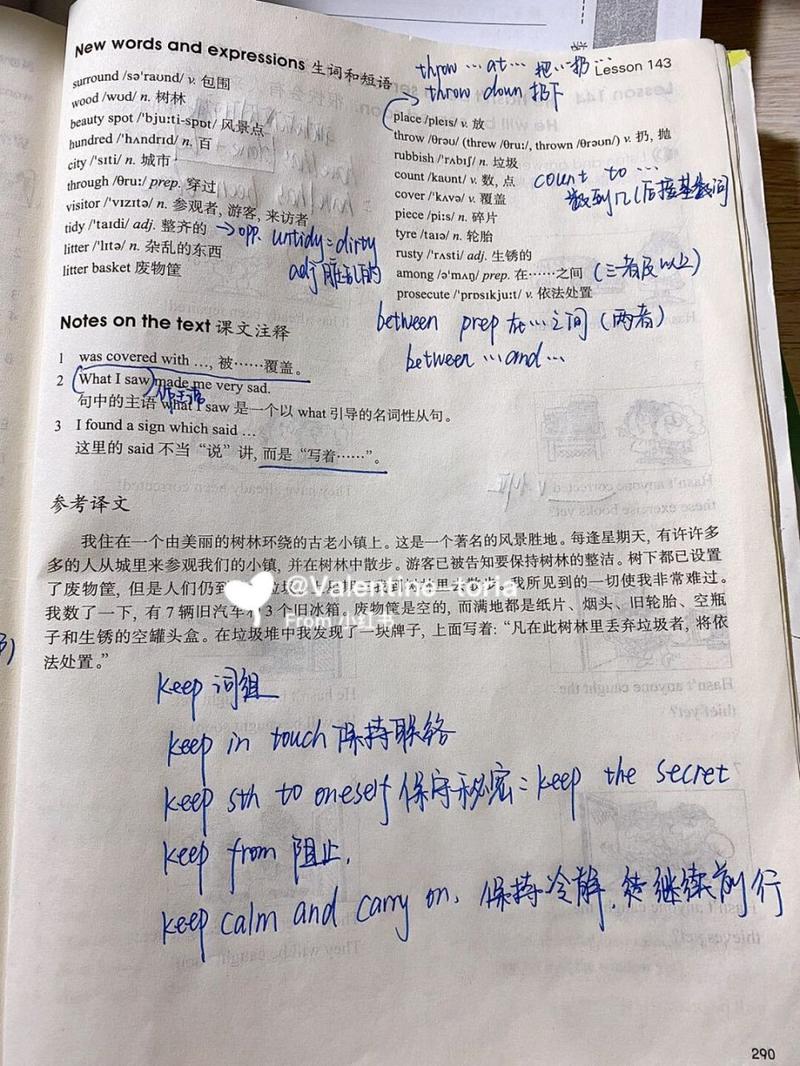 New words and expressions 生词和短语
throw … at … 把…扔…
Lesson 143
throw down 扔下
surround /sə'raund/ v. 包围
wood /wud/ n. 树林
beauty spot /'bju:ti-spɒt/ 风景点
hundred /'hʌndrid/ n. 百
city /'siti/ n. 城市
through /θru:/ prep. 穿过
visitor /'vɪzɪtə/ n. 参观者, 游客, 来访者
tidy /'taidi/ adj. 整齐的 → opp. untidy = dirty
adj 脏乱的
litter /'lɪtə/ n. 杂乱的东西
litter basket 废物筐
place /pleis/ v. 放
throw /θrəu/ (threw /θru:/, thrown /θrəun/) v. 扔, 抛
rubbish /'rʌbɪʃ/ n. 垃圾
count /kaunt/ v. 数, 点
count to …
数到几(后接基数词
cover /'kʌvə/ v. 覆盖
piece /pi:s/ n. 碎片
tyre /taɪə/ n. 轮胎
rusty /'rʌsti/ adj. 生锈的
among /ə'mʌŋ/ prep. 在……之间 (三者及以上)
prosecute /'prɒsikju:t/ v. 依法处置
between prep 在…之间 (两者)
between … and …
Notes on the text 课文注释
1 was covered with …, 被……覆盖。
2 What I saw made me very sad.
作主语
句中的主语 what I saw 是一个以 what 引导的名词性从句。
3 I found a sign which said …
这里的 said 不当“说”讲, 而是“写着……”。
参考译文
我住在一个由美丽的树林环绕的古老小镇上。这是一个著名的风景胜地。每逢星期天, 有许许多
多的人从城里来参观我们的小镇, 并在树林中散步。游客已被告知要保持树林的整洁。树下都已设置
了废物筐, 但是人们仍到 我所见到的一切使我非常难过。
@Valentino-toria
From 小红书
我数了一下, 有 7 辆旧汽车 3 个旧冰箱。废物筐是空的, 而满地都是纸片、烟头、旧轮胎、空瓶
子和生锈的空罐头盒。在垃圾堆中我发现了一块牌子, 上面写着: “凡在此树林里丢弃垃圾者, 将依
法处置。”
keep 词组
keep in touch 保持联络
keep sth to oneself 保守秘密 = keep the secret
keep from 阻止.
keep calm and carry on. 保持冷静, 继续前行
290